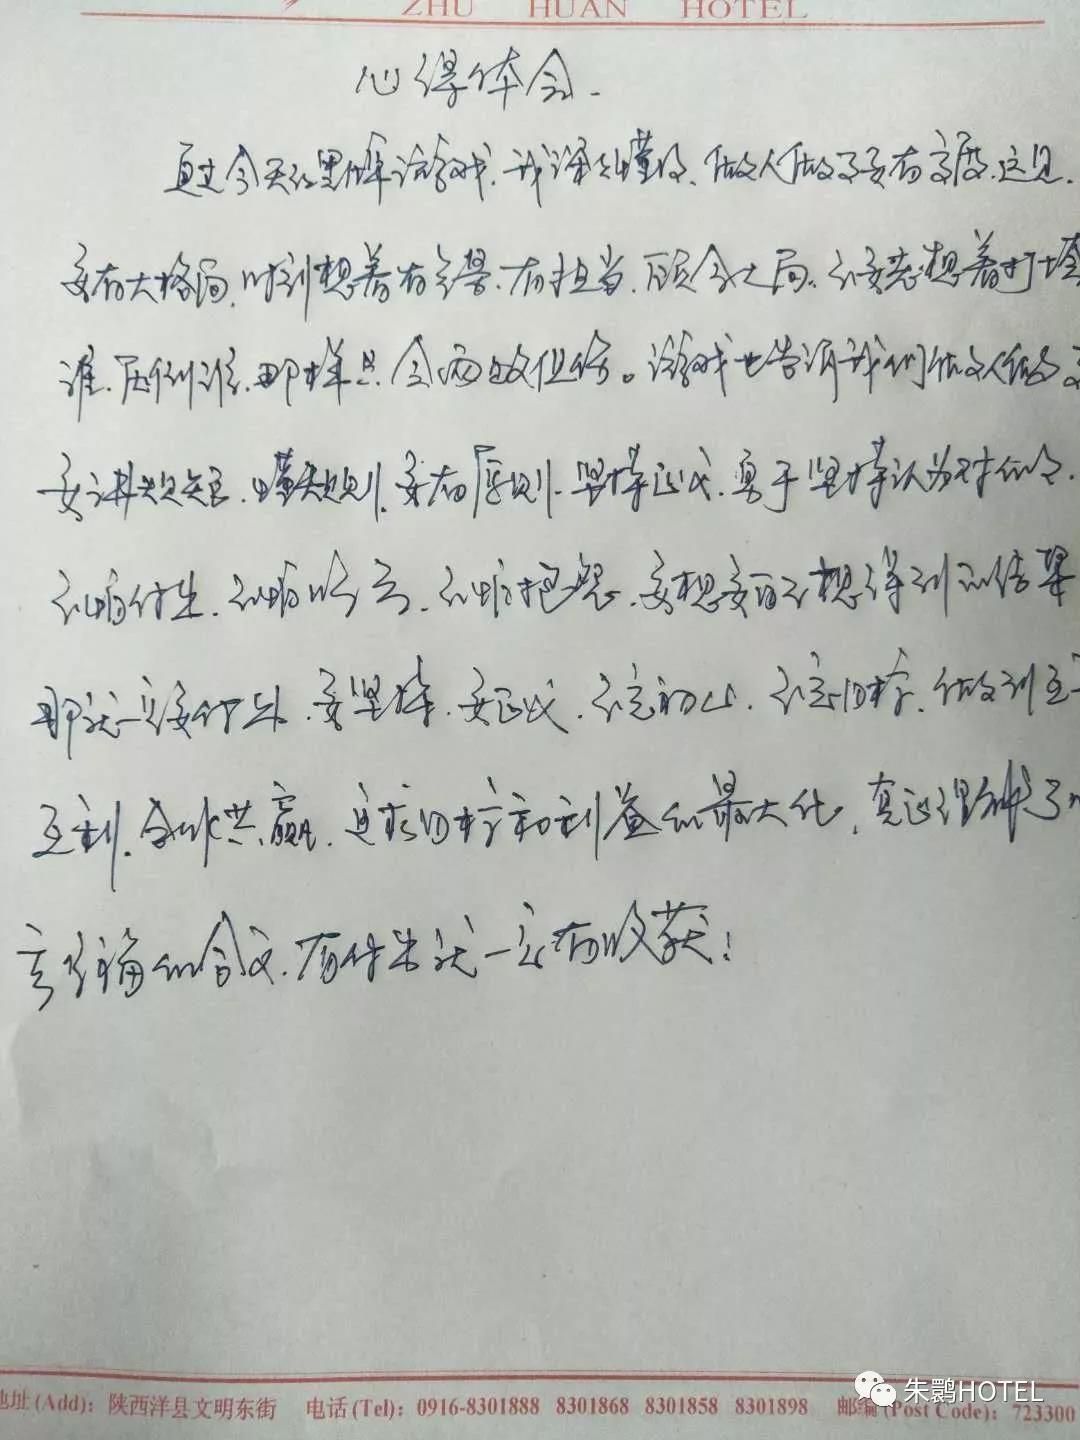 ZHU HUAN HOTEL
心得体会.
通过今天的黑件游戏,我深刻懂得,做人做事要有高度、远见,
要有大格局,时刻想着有荣誉,有担当,顾全大局,不要老想着打垮
谁,压倒谁,那样只会两败俱伤。游戏也告诉我们做人做事
要讲规矩,懂规则,要有原则,坚持正义,勇于坚持认为对的,
不怕付出,不怕吃亏,不怕抱怨,要想要自己想得到的结果
那就一定要付出,要坚持,要正义,不忘初心,不忘目标,做到互
互利,合作共赢,追求目标和利益的最大化,真正理解了
幸福的含义,有付出就一定有收获!
地址(Add): 陕西洋县文明东街 电话(Tel): 0916-8301888 8301868 8301858 8301898 邮编(Post Code): 723300
朱鹮HOTEL